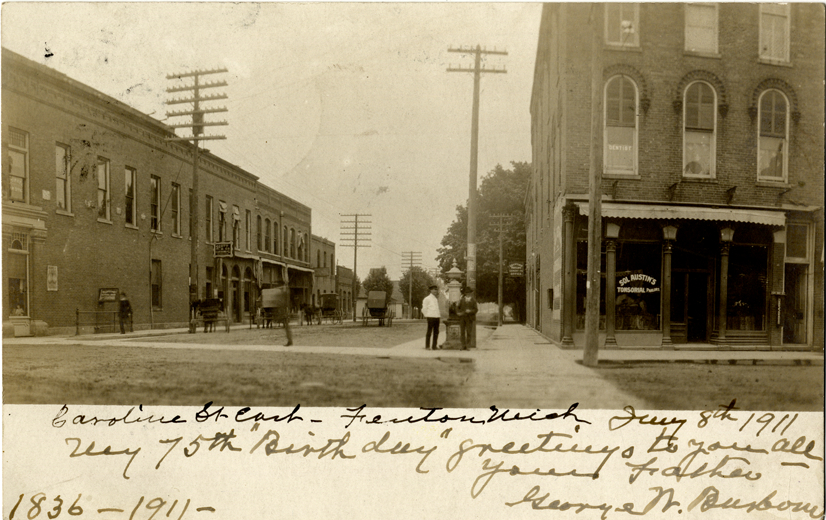 DENTIST
SOL AUSTIN'S
TONSORIAL PARLORS
Caroline St East - Fenton Mich
July 8th 1911
My 75th "Birthday" greetings to you all
Your Father
George W.
1836 - 1911 -